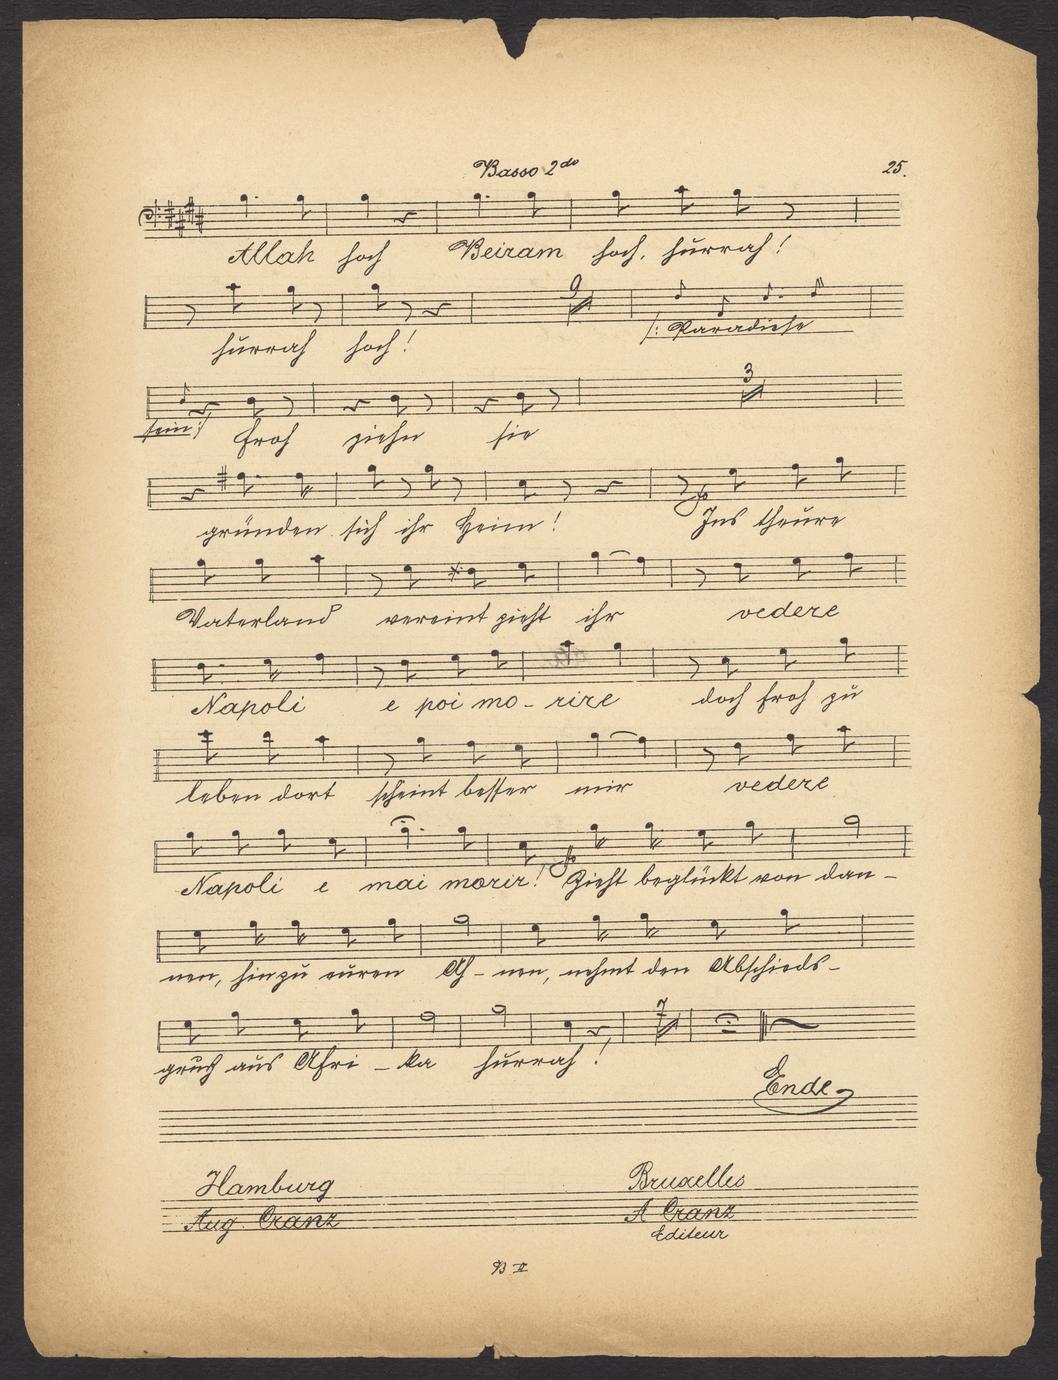 Basso 2do
25.
Allah hoch Beiram hoch, hurrah!
9
hurrah hoch! /: Paradiese
3
sein :/ Froh ziehn sie
gründen sich ihr Heim! Ins theure
Vaterland vereint zieht ihr vedere
Napoli e poi mo - rire doch froh zu
leben dort scheint besser mir vedere
Napoli e mai morir! Zieht beglückt von dan -
nen, hin zu euren Ah - nen, nehmt den Abschieds -
7
gruß aus Afri - ka hurrah!
Ende
Hamburg Bruxelles
Aug. Cranz A Cranz
Editeur
B II